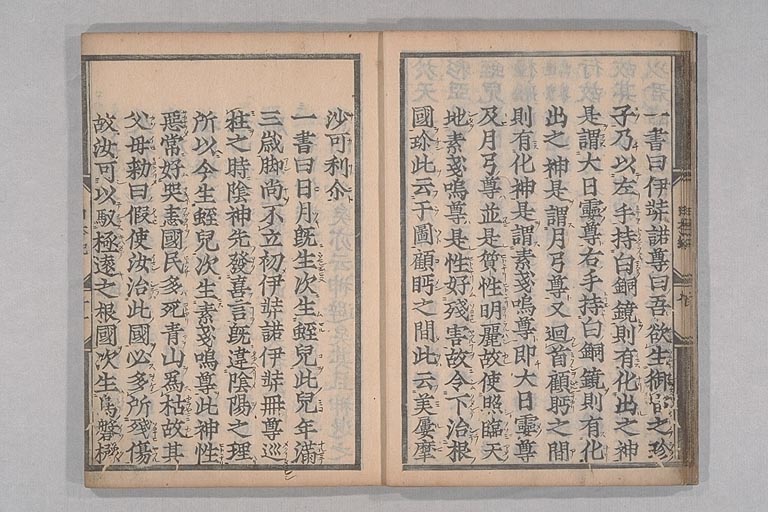 一書曰伊弉諾尊曰吾欲生御㝢之珍
子乃以左手持白銅鏡則有化出之神
是謂大日孁尊右手持白銅鏡則有化
出之神是謂月弓尊又迴首顧眄之間
則有化神是謂素戔嗚尊即大日孁尊
及月弓尊並是質性明麗故使照臨天
地素戔嗚尊是性好殘害故令下治根
國珎此云于圖顧眄之間此云美屢摩
沙可利尒
一書曰日月既生次生蛭兒此兒年滿
三歳脚尚不立初伊弉諾伊弉冊尊巡
柱之時陰神先發喜言既違陰陽之理
所以今生蛭兒次生素戔嗚尊此神性
惡常好哭恚國民多死青山爲枯故其
父母勅曰假使汝治此國必多所殘傷
故汝可以馭極遠之根國次生鳥磐櫲